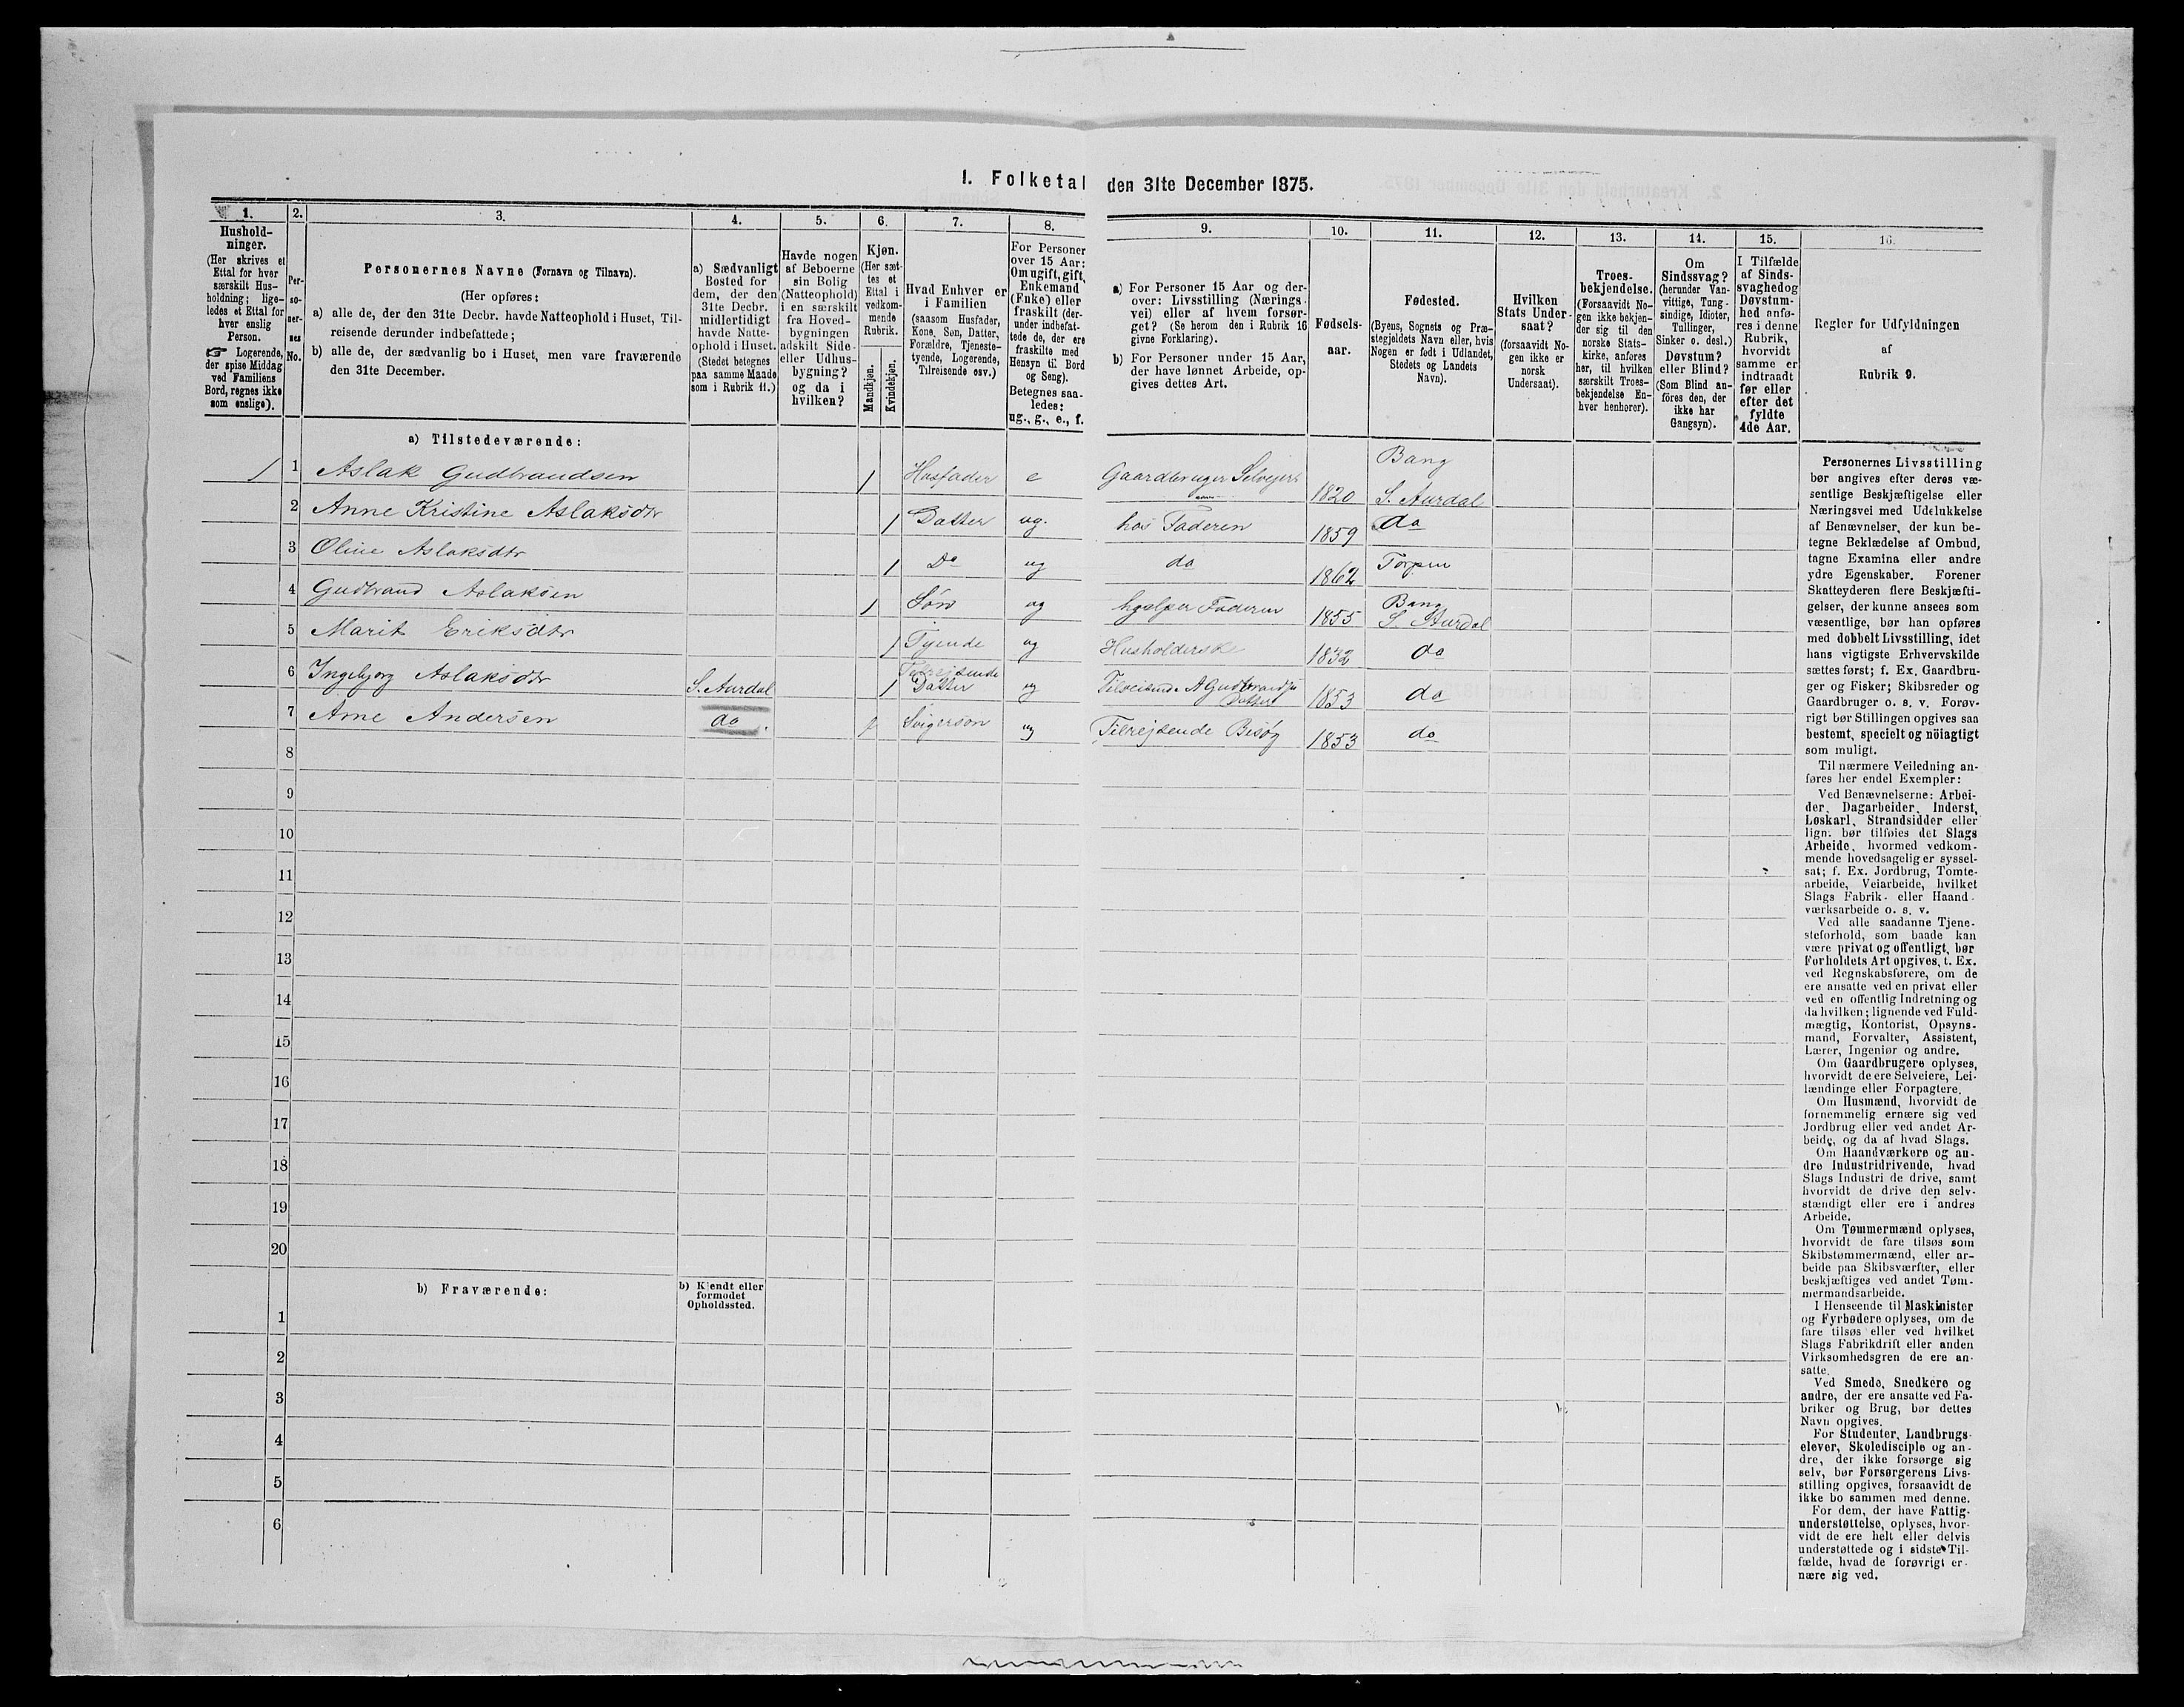 1. Folketal den 31te December 1875.
1.
Hushold-
ninger.
(Her skrives et
Ettal for hver
særskilt Hus-
holdning; lige-
ledes et Ettal for
hver enslig
Person.
☞ Logerende,
der spise Middag
ved Familiens
Bord, regnes ikke
som enslige).
2.
Per-
so-
ner-
nes
No.
3.
Personernes Navne (Fornavn og Tilnavn).
(Her opføres:
a) alle de, der den 31te Decbr. havde Natteophold i Huset, Til-
reisende derunder indbefattede;
b) alle de, der sædvanlig bo i Huset, men vare fraværende
den 31te December.
4.
a) Sædvanligt
Bosted for
dem, der den
31te Decbr.
midlertidigt
havde Natte-
ophold i Huset.
(Stedet betegnes
paa samme Maade
som i Rubrik 11.)
5.
Havde nogen
af Beboerne
sin Bolig
(Natteophold)
i en særskilt
fra Hoved-
bygningen
adskilt Side-
eller Udhus-
bygning?
og da i
hvilken?
6.
Kjøn.
(Her sæt-
tes et
Ettal i
vedkom-
mende
Rubrik.
Mandkjøn.
Kvindekjøn.
7.
Hvad Enhver er
i Familien
(saasom Husfader,
Kone, Søn, Datter,
Forældre, Tjeneste-
tyende, Logerende,
Tilreisende osv.)
8.
For Personer
over 15 Aar:
Om ugift, gift,
Enkemand
(Enke) eller
fraskilt (der-
under indbefat-
tede de, der ere
fraskilte med
Hensyn til Bord
og Seng).
Betegnes saa-
ledes:
ug., g., e., f.
9.
a) For Personer 15 Aar og der-
over: Livsstilling (Nærings-
vei) eller af hvem forsør-
get? (Se herom den i Rubrik 16
givne Forklaring).
b) For Personer under 15 Aar,
der have lønnet Arbeide, op-
gives dettes Art.
10.
Fødsels-
aar.
11.
Fødested.
(Byens, Sognets og Præ-
stegjeldets Navn eller, hvis
Nogen er født i Udlandet,
Stedets og Landets
Navn).
12.
Hvilken
Stats Under-
saat?
(forsaavidt No-
gen ikke er
norsk
Undersaat).
13.
Troes-
bekjendelse.
(Forsaavidt No-
gen ikke bekjen-
der sig til den
norske Stats-
kirke, anføres
her, til hvilken
særskilt Troes-
bekjendelse En-
hver henhører).
14.
Om
Sindssvag?
(herunder Van-
vittige, Tung-
sindige, Idioter,
Tullinger,
Sinker o. desl.)
Døvstum?
eller Blind?
(Som Blind an-
føres den, der
ikke har
Gangsyn).
15.
I Tilfælde
af Sinds-
svaghed og
Døvstum-
hed anfø-
res i denne
Rubrik,
hvorvidt
samme er
indtraadt
før eller
efter det
fyldte
4de Aar.
16.
Regler for Udfyldningen
af
Rubrik 9.
a) Tilstedeværende:
1 1 Aslak Gudbrandsen 1 Husfader e Gaardbruger Selvejer 1820 Bang S. Aurdal
2 Anne Kristine Aslaksdtr 1 Datter ug. hos Faderen 1859 do
3 Oline Aslaksdtr 1 Do ug do 1862 Torpen
4 Gudbrand Aslaksen 1 Søn ug hjælper Faderen 1855 Bang S. Aurdal
5 Marit Eriksdtr 1 Tjende ug Husholderske 1832 do
6 Ingebjorg Aslaksdtr S. Aurdal 1 Tilrejsende Datter ug Tilreisende A Gudbrandsen Datter 1853 do
7 Arne Andersen do. 1 Svigersøn ug Tilrejsende Besøg 1853 do
8
9
10
11
12
13
14
15
16
17
18
19
20
b) Fraværende:
b) Kjendt eller
formodet
Opholdssted.
1
2
3
4
5
6
Personernes Livsstilling
bør angives efter deres væ-
sentlige Beskjæftigelse eller
Næringsvei med Udelukkelse
af Benævnelser, der kun be-
tegne Beklædelse af Ombud,
tagne Examina eller andre
ydre Egenskaber. Forener
Skatteyderen flere Beskjæfti-
gelser, der kunne ansees som
væsentlige, bør han opføres
med dobbelt Livsstilling, idet
hans vigtigste Erhvervskilde
sættes først; f. Ex. Gaardbru-
ger og Fisker; Skibsreder og
Gaardbruger o. s. v. Forøv-
rigt bør Stillingen opgives saa
bestemt, specielt og nöiagtigt
som muligt.
Til nærmere Veiledning an-
føres her endel Exempler:
Ved Benævnelserne: Arbei-
der, Dagarbeider, Inderst,
Løskarl, Strandsidder eller
lign. bør tilføies det Slags
Arbeide, hvormed vedkom-
mende hovedsagelig er syssel-
sat; f. Ex. Jordbrug, Tomte-
arbeide, Veiarbeide, hvilket
Slags Fabrik- eller Haand-
værksarbeide o. s. v.
Ved alle saadanne Tjene-
steforhold, som baade kan
være privat og offentligt, bør
Forholdets Art opgives, t. Ex.
ved Regnskabsførere, om de
ere ansatte ved en privat eller
ved en offentlig Indretning og
da hvilken; lignende ved Fuld-
mægtig, Kontorist, Opsyns-
mand, Forvalter, Assistent,
Lærer, Ingeniør og andre.
Om Gaardbrugere oplyses,
hvorvidt de ere Selveiere, Lei-
lændinge eller Forpagtere.
Om Husmænd, hvorvidt de
fornemmelig ernære sig ved
Jordbrug eller ved andet Ar-
beide, og da af hvad Slags.
Om Haandværkere og an-
dre Industridrivende, hvad
Slags Industri de drive, samt
hvorvidt de drive den selv-
stændigt eller ere i andres
Arbeide.
Om Tømmermænd oplyses,
hvorvidt de fare tilsøs som
Skibstømmermænd, eller ar-
beide paa Skibsværfter, eller
beskjæftiges ved andet Tøm-
mermandsarbeide.
I Henseende til Maskinister
og Fyrbødere oplyses, om de
fare tilsøs eller ved hvilket
Slags Fabrikdrift eller anden
Virksomhedsgren de ere an-
satte.
Ved Smede, Snedkere og
andre, der ere ansatte ved Fa-
briker og Brug, bør dettes
Navn opgives.
For Studenter, Landbrugs-
elever, Skoledisciple og an-
dre, der ikke forsørge sig
selv, bør Forsørgerens Livs-
stilling opgives, forsaavidt de
ikke bo sammen med denne.
For dem, der have Fattig-
understøttelse, oplyses, hvor-
vidt de ere helt eller delvis
understøttede og i sidste Til-
fælde, hvad de forøvrigt er-
nære sig ved.